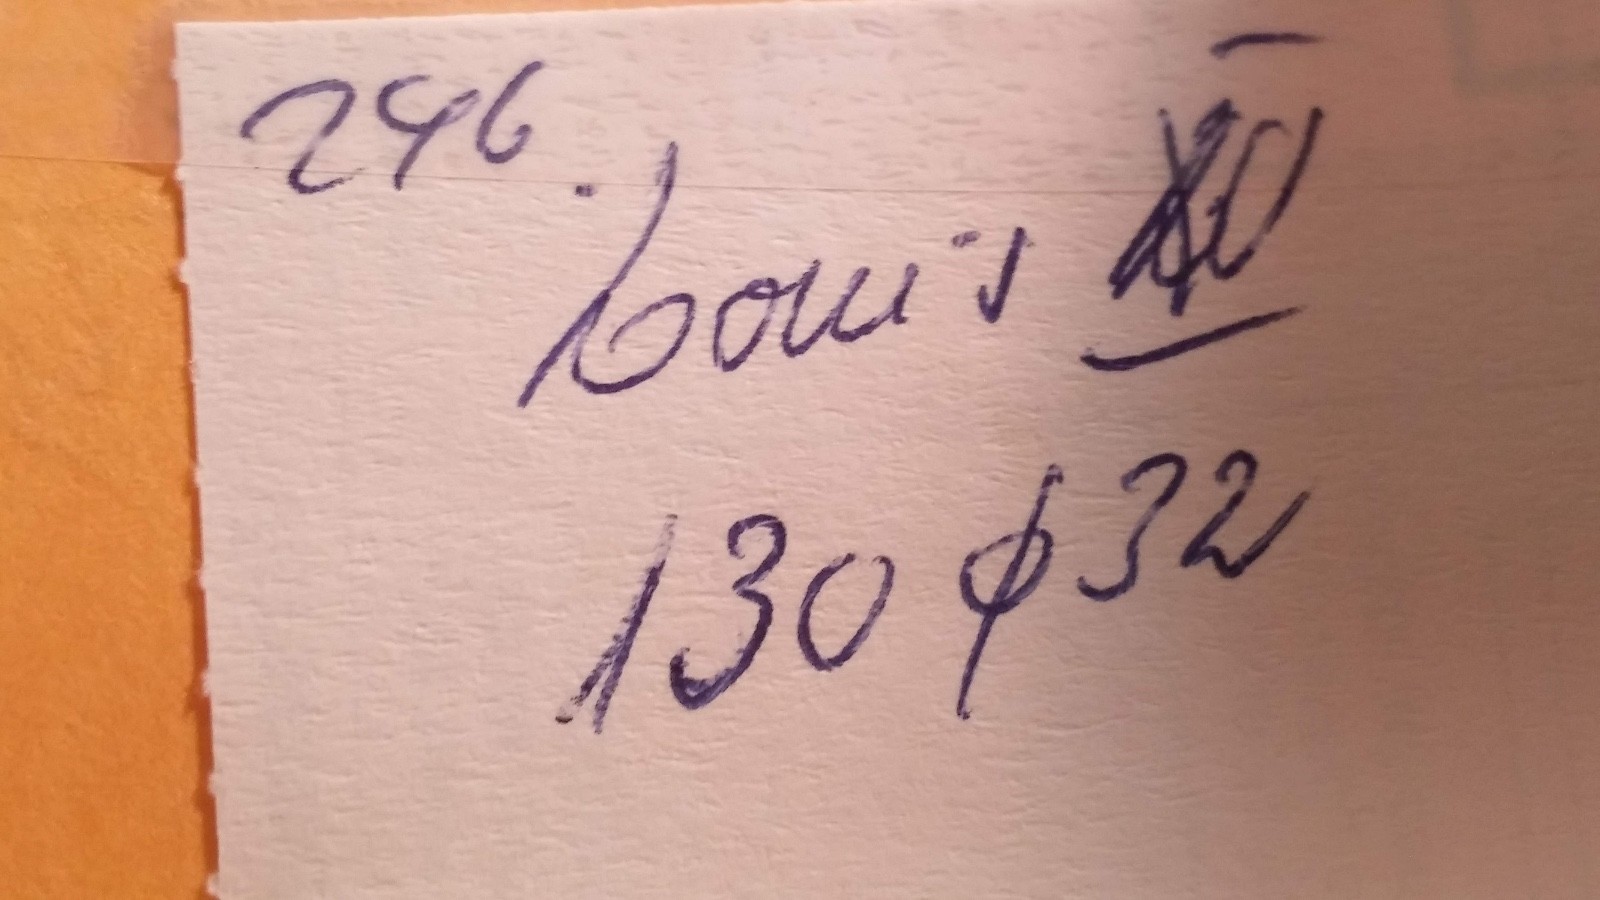 246.
Louis XV
130 ϕ 32